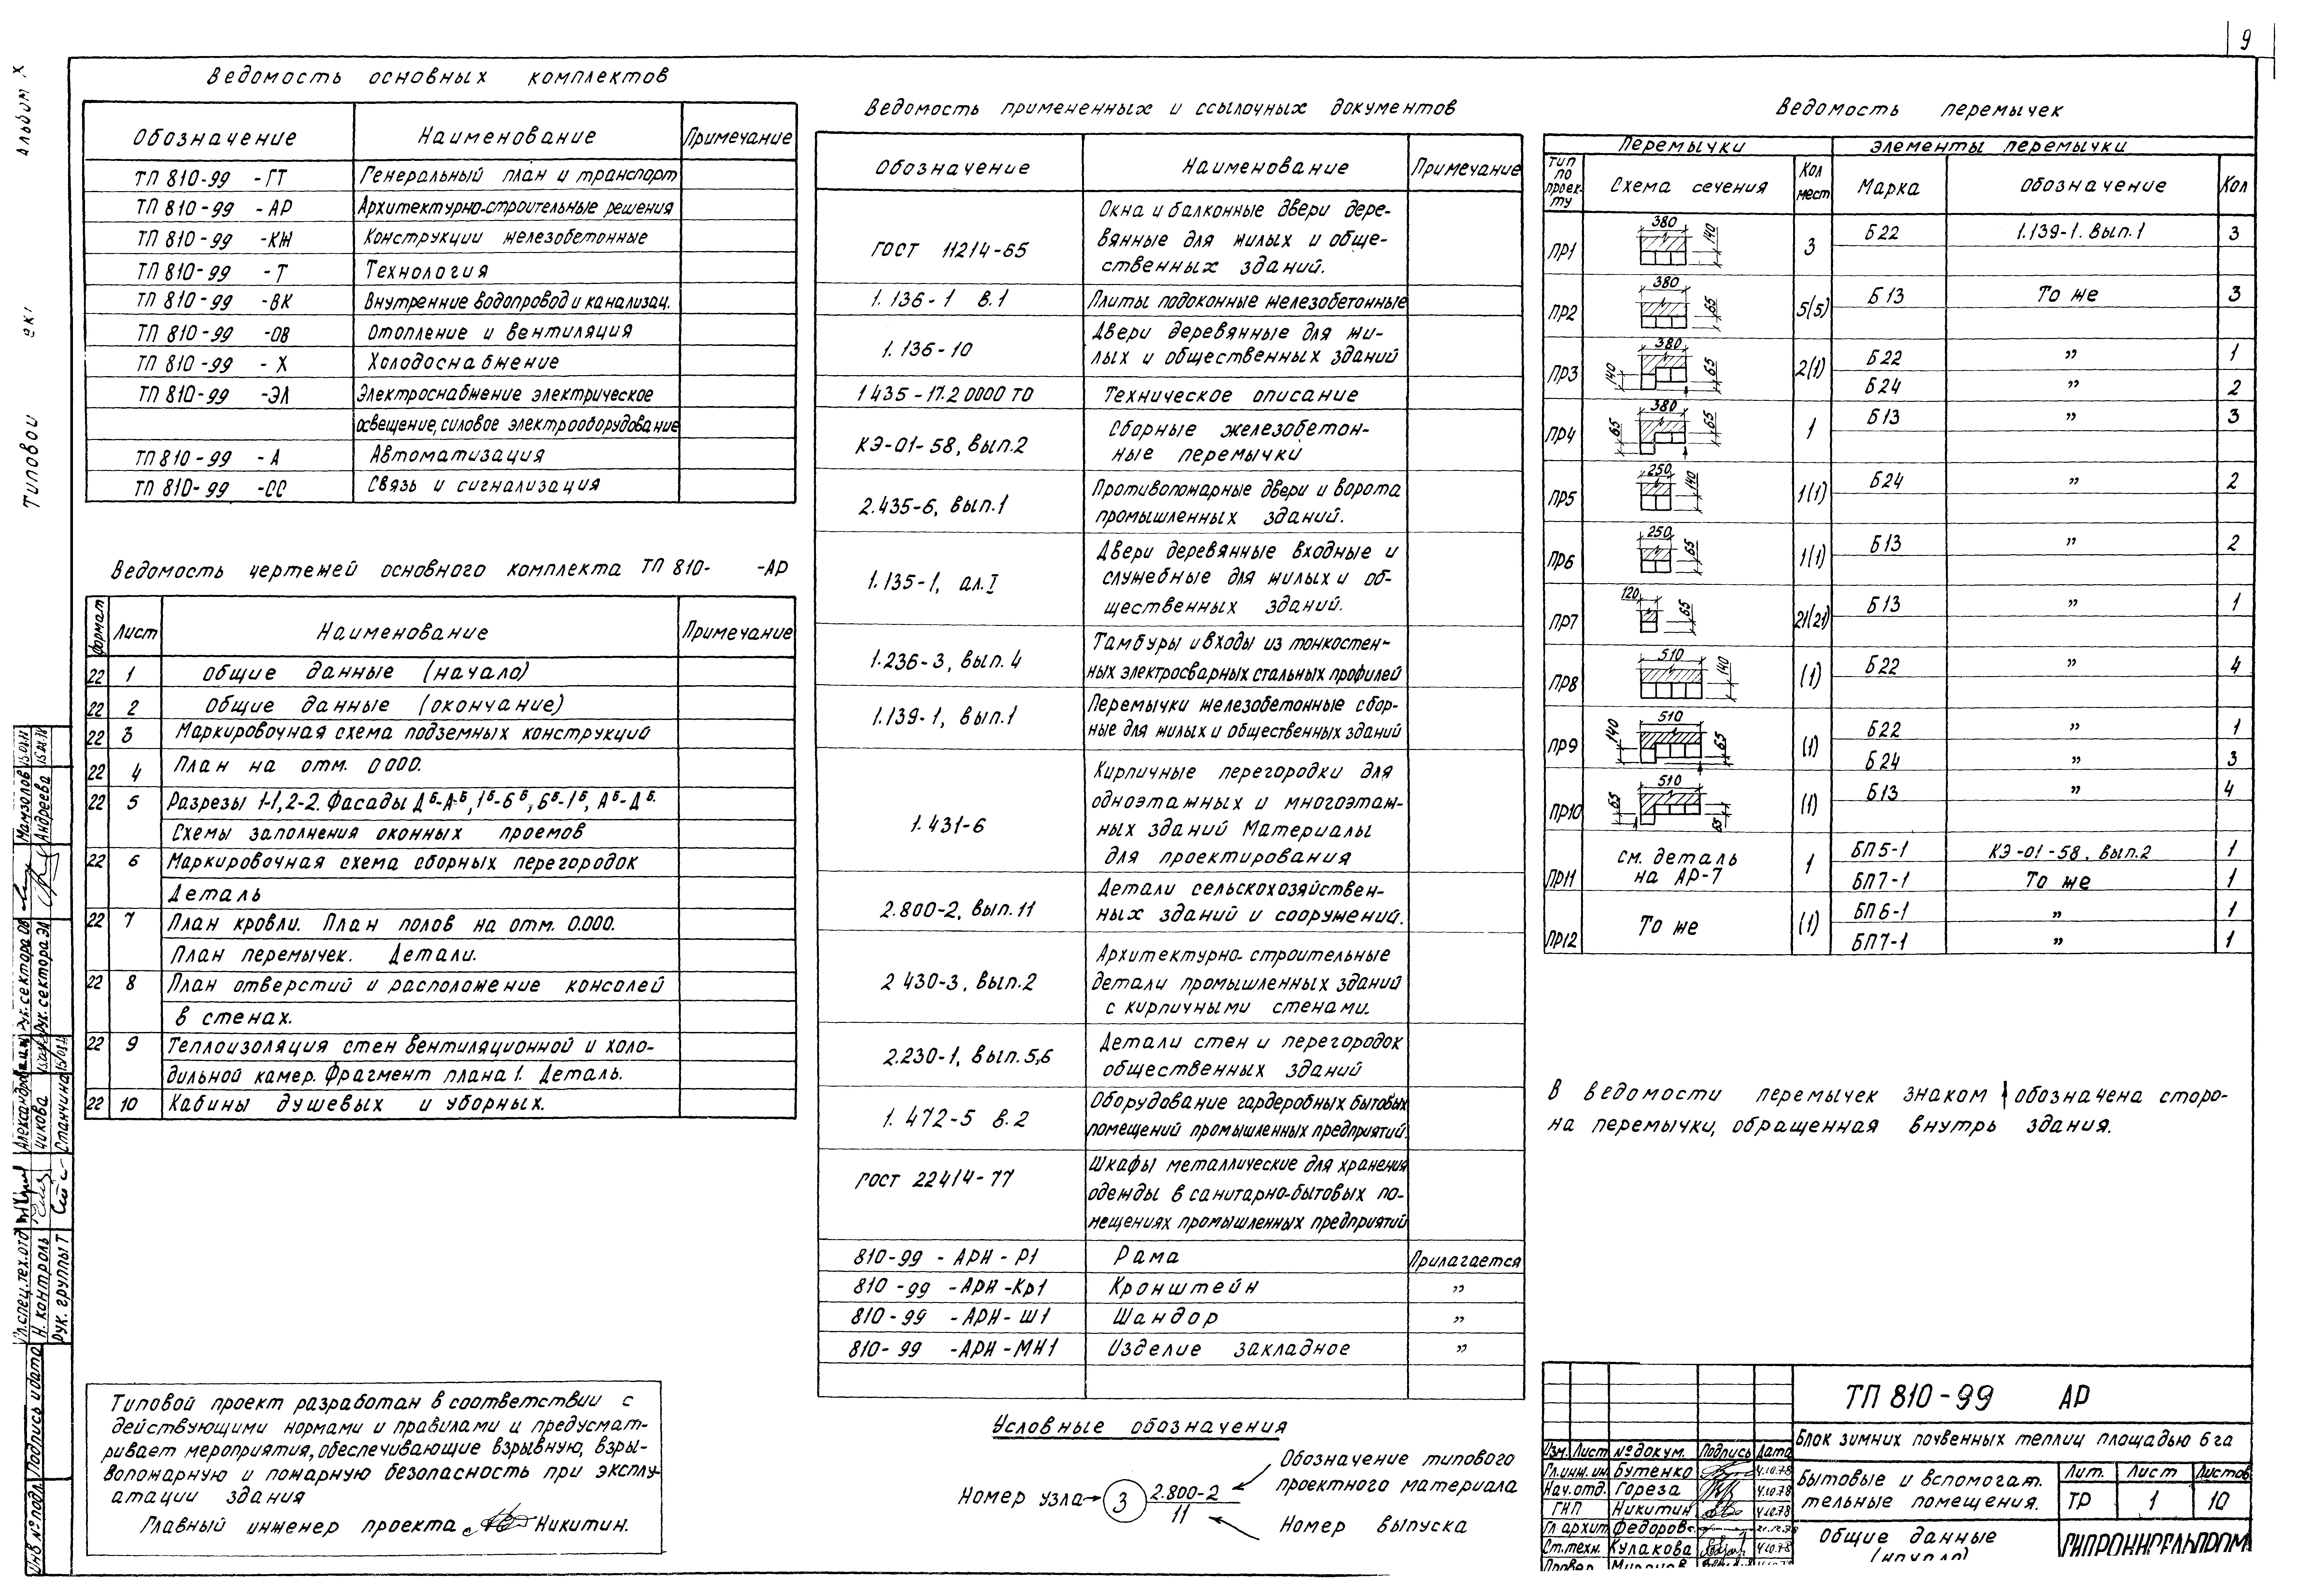 9
Альбом X
Типовой
Ведомость основных комплектов
Обозначение Наименование Примечание
ТП 810-99 -ГТ Генеральный план и транспорт
ТП 810-99 -АР Архитектурно-строительные решения
ТП 810-99 -КЖ Конструкции железобетонные
ТП 810-99 -Т Технология
ТП 810-99 -ВК Внутренние водопровод и канализац.
ТП 810-99 -ОВ Отопление и вентиляция
ТП 810-99 -Х Холодоснабжение
ТП 810-99 -ЭЛ Электроснабжение электрическое
освещение, силовое электрооборудование
ТП 810-99 -А Автоматизация
ТП 810-99 -СС Связь и сигнализация
Ведомость чертежей основного комплекта ТП 810- -АР
Формат Лист Наименование Примечание
22 1 Общие данные (начало)
22 2 Общие данные (окончание)
22 3 Маркировочная схема подземных конструкций
22 4 План на отм. 0000.
22 5 Разрезы 1-1, 2-2. Фасады Дᵇ-Аᵇ, 1ᵇ-6ᵇ, 6ᵇ-1ᵇ, Аᵇ-Дᵇ.
Схемы заполнения оконных проемов
22 6 Маркировочная схема сборных перегородок
Деталь
22 7 План кровли. План полов на отм. 0.000.
План перемычек. Детали.
22 8 План отверстий и расположение консолей
в стенах.
22 9 Теплоизоляция стен вентиляционной и холо-
дильной камер. Фрагмент плана 1. Деталь.
22 10 Кабины душевых и уборных.
Типовой проект разработан в соответствии с
действующими нормами и правилами и предусмат-
ривает мероприятия, обеспечивающие взрывную, взры-
вопожарную и пожарную безопасность при эксплу-
атации здания
Главный инженер проекта Никитин.
Ведомость примененных и ссылочных документов
Обозначение Наименование Примечание
ГОСТ 11214-65 Окна и балконные двери дере-
вянные для жилых и обще-
ственных зданий.
1.136-1 в.1 Плиты подоконные железобетонные
1.136-10 Двери деревянные для жи-
лых и общественных зданий
1 435-17.2 0000 ТО Техническое описание
КЭ-01-58, вып.2 Сборные железобетон-
ные перемычки
2.435-6, вып.1 Противопожарные двери и ворота
промышленных зданий.
1.135-1, ал.I Двери деревянные входные и
служебные для жилых и об-
щественных зданий.
1.236-3, вып.4 Тамбуры и входы из тонкостен-
ных электросварных стальных профилей
1.139-1, вып.1 Перемычки железобетонные сбор-
ные для жилых и общественных зданий
1.431-6 Кирпичные перегородки для
одноэтажных и многоэтаж-
ных зданий Материалы
для проектирования
2.800-2, вып.11 Детали сельскохозяйствен-
ных зданий и сооружений.
2 430-3, вып.2 Архитектурно-строительные
детали промышленных зданий
с кирпичными стенами.
2.230-1, вып.5,6 Детали стен и перегородок
общественных зданий
1. 472-5 в.2 Оборудование гардеробных бытовых
помещений промышленных предприятий.
ГОСТ 22414-77 Шкафы металлические для хранения
одежды в санитарно-бытовых по-
мещениях промышленных предприятий
810-99 - АРН - Р1 Рама Прилагается
810-99 -АРН -Кр1 Кронштейн "
810-99 -АРН- Ш1 Шандор "
810-99 -АРН -МН1 Изделие закладное "
Условные обозначения
Номер узла 3 2.800-2
11
Обозначение типового
проектного материала
Номер выпуска
Ведомость перемычек
Перемычки Элементы перемычки
Тип по проек-ту Схема сечения Кол мест Марка Обозначение Кол
ПР1 380 140 3 Б22 1.139-1. вып.1 3
ПР2 380 65 5(5) Б13 То же 3
ПР3 380 140 65 2(1) Б22 " 1
Б24 " 2
ПР4 380 65 65 1 Б13 " 3
ПР5 250 140 1(1) Б24 " 2
ПР6 250 65 1(1) Б13 " 2
ПР7 120 65 21(21) Б13 " 1
ПР8 510 140 (1) Б22 " 4
ПР9 510 140 65 (1) Б22 " 1
Б24 " 3
ПР10 510 65 65 (1) Б13 " 4
ПР11 см. деталь на АР-7 1 БП5-1 КЭ-01-58, вып.2 1
БП7-1 То же 1
ПР12 То же (1) БП6-1 " 1
БП7-1 " 1
В ведомости перемычек знаком обозначена сторо-
на перемычки, обращенная внутрь здания.
ТП 810-99 АР
Блок зимних почвенных теплиц площадью 6 га
Изм. Лист № докум. Подпись Дата
Гл.инж.ин Бутенко 4.10.78
Нач.отд. Гореза 4.10.78
ГИП Никитин 4.10.78
Гл архит Федоров
Ст.техн. Кулакова 4.10.78
Бытовые и вспомогат.
тельные помещения.
Лит. Лист Листов
ТР 1 10
Общие данные
(начало)
ГИПРОНИСЕЛЬПРОМ
Гл.спец.тех.отд
Н. контроль Чикова
Рук. группы Т Спанчина
Рук. сектора ОВ
Рук. сектора ЭЛ Андреева
Инв.№ подл. Подпись и дата